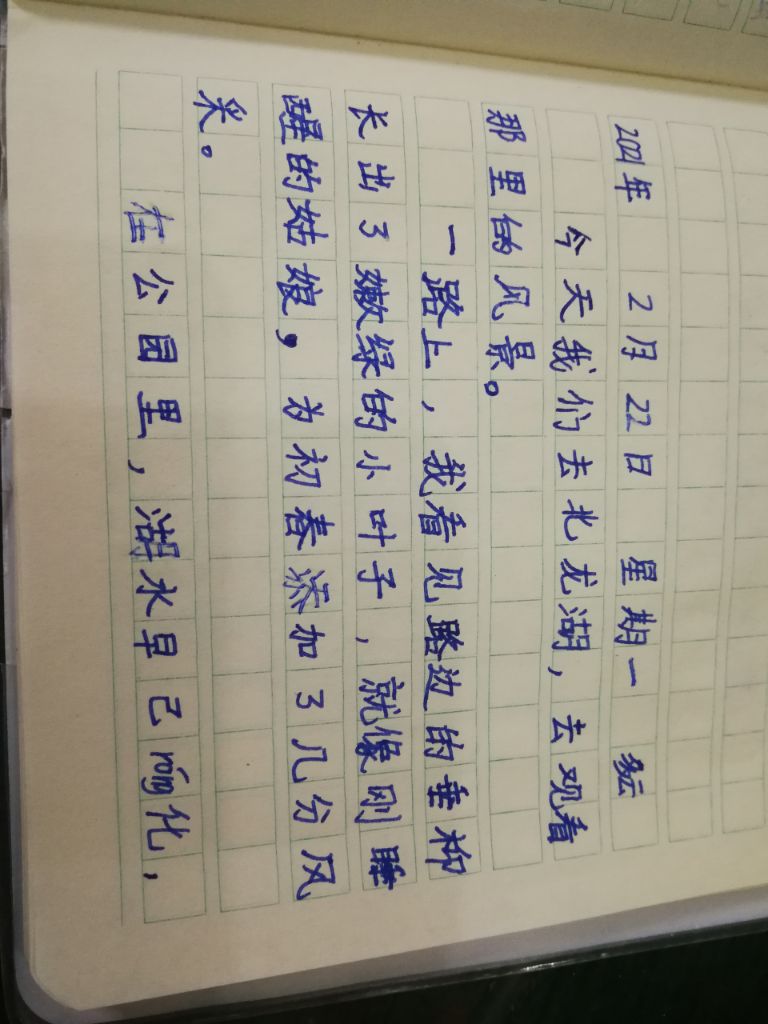 2021年 2月22日 星期一 多云
今天我们去北龙湖，去观看
那里的风景。
一路上，我看见路边的垂柳
长出了嫩绿的小叶子，就像刚睡
醒的姑娘，为初春添加了几分风
采。
在公园里，湖水早已róng化，